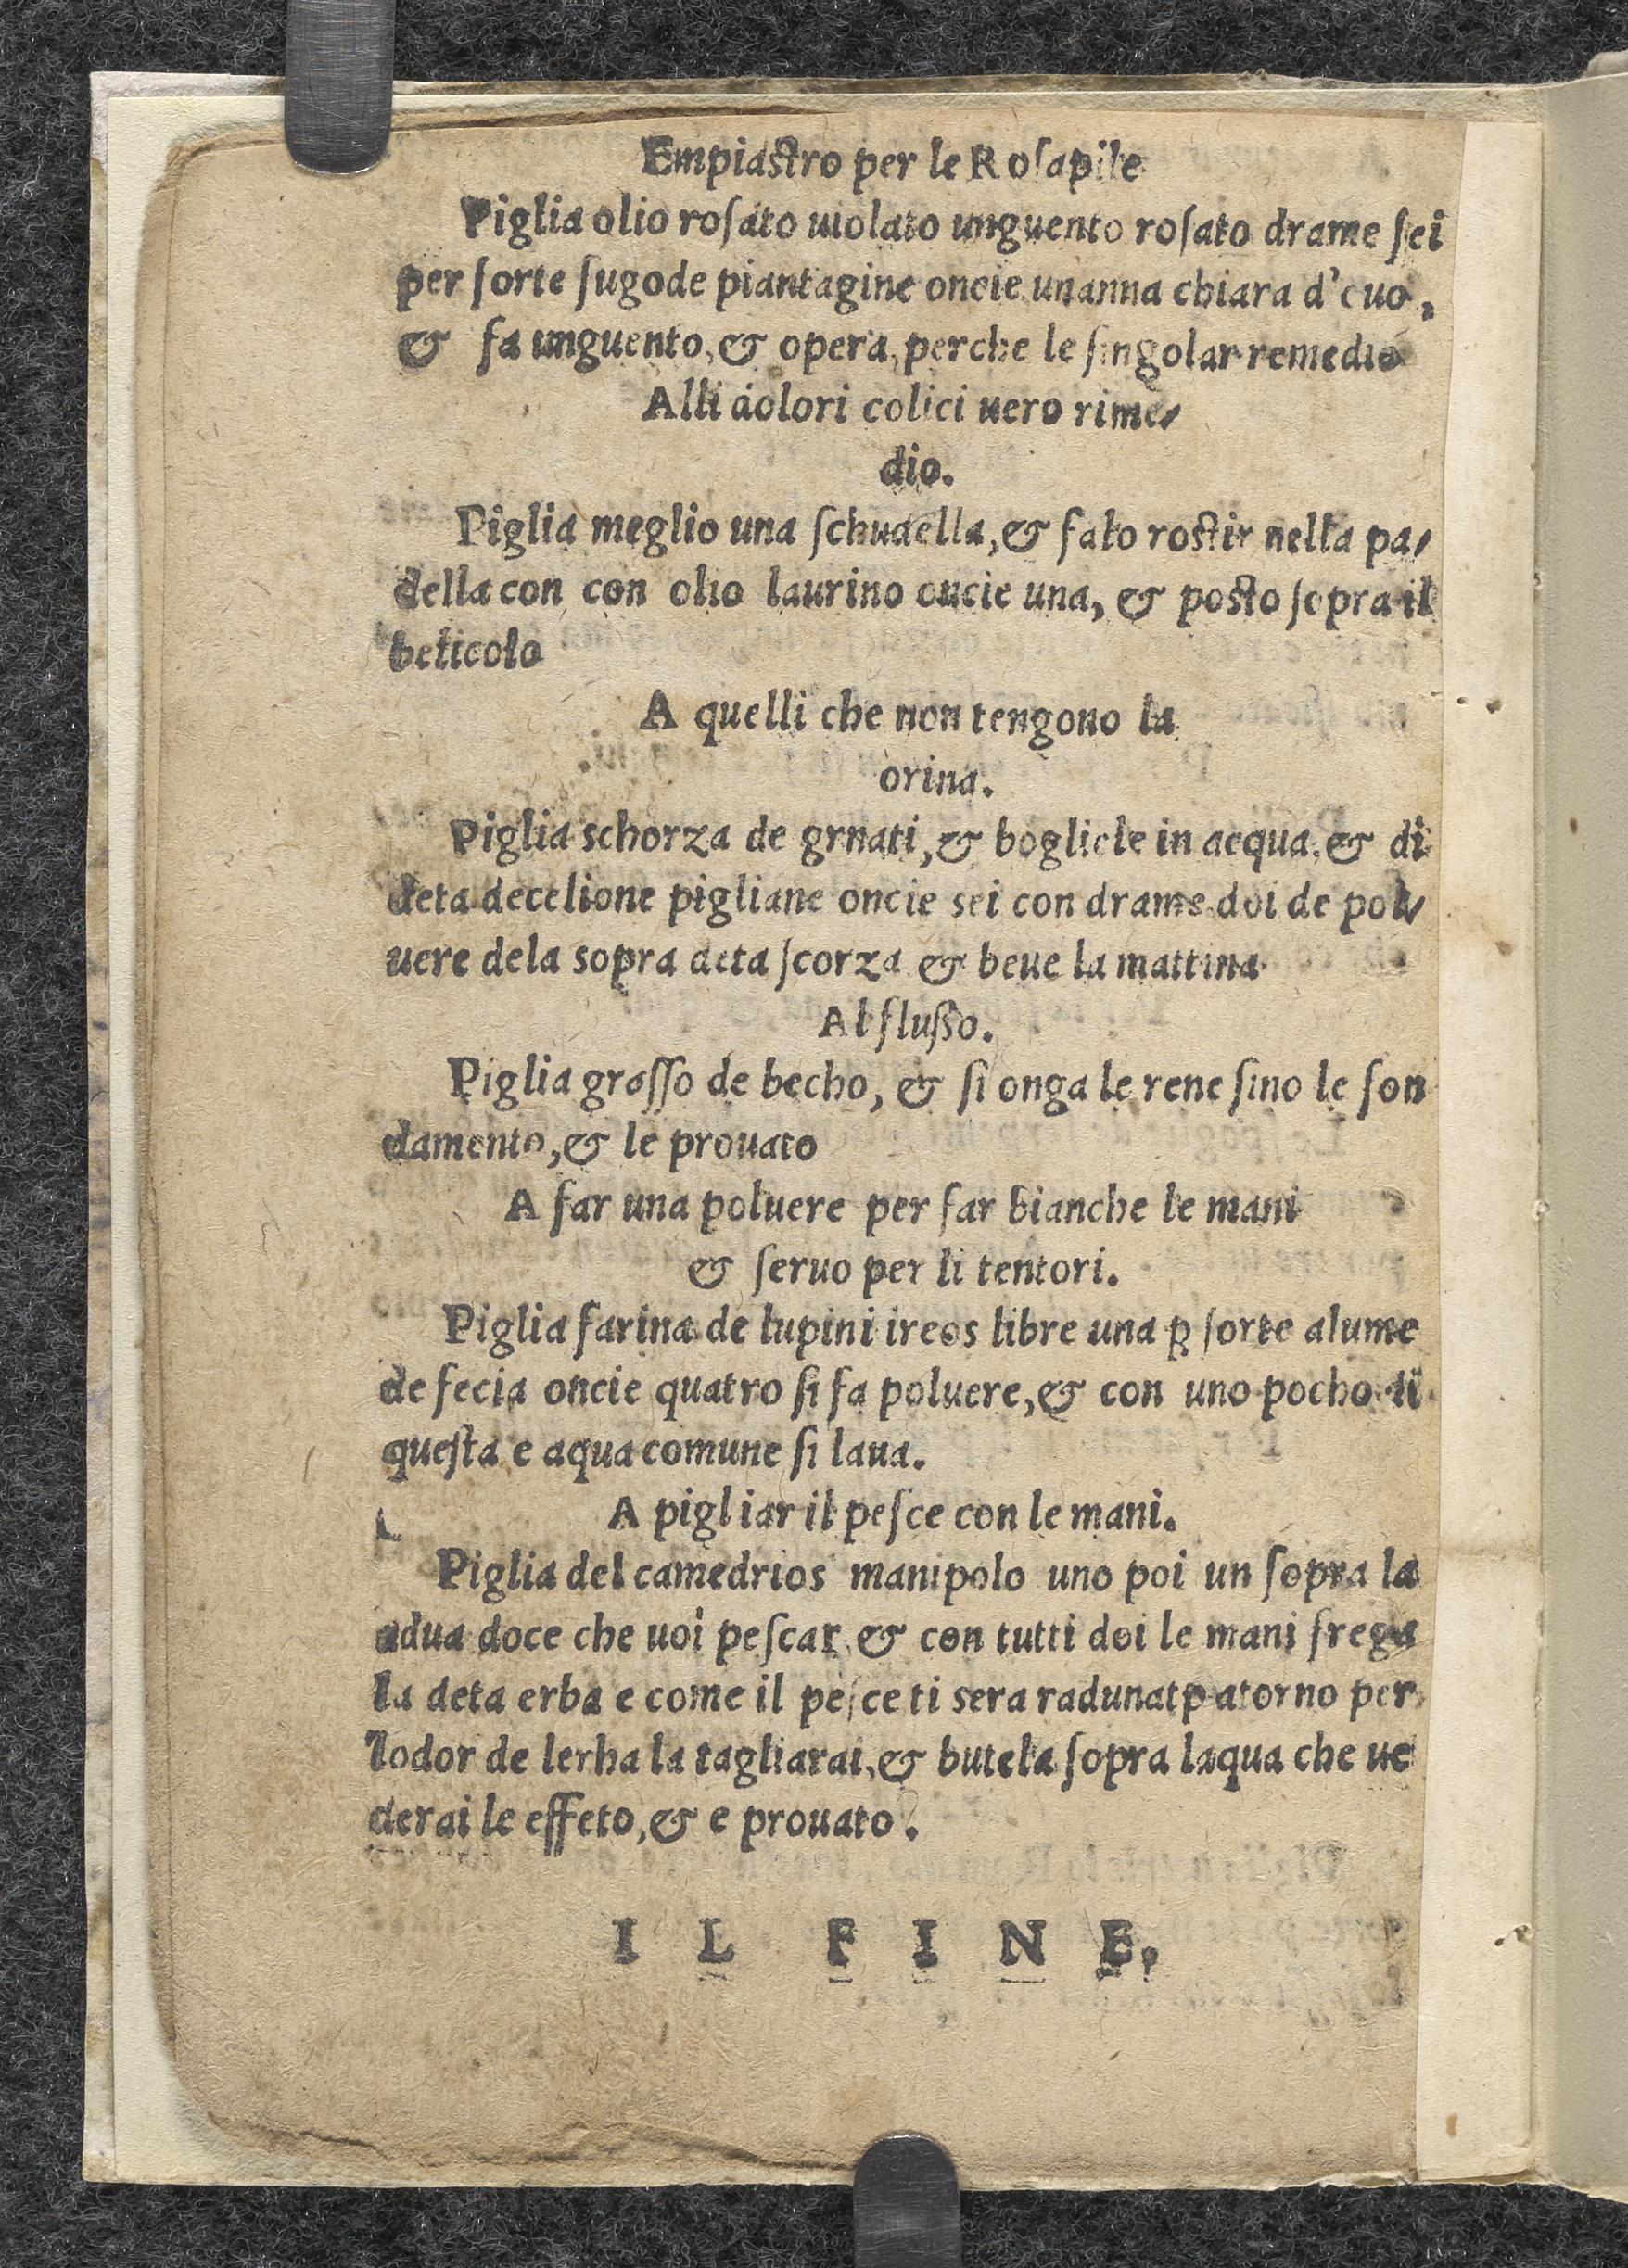 Empiastro per le Roſapile
Piglia olio roſato uiolato unguento roſato drame ſei
per ſorte ſugode piantagine oncie unanna chiara d'euo,
& fa unguento, & opera, perche le ſingolar remedio
Alli dolori colici uero rime⸗
dio.
Piglia meglio una ſchudella, & falo roſtir nella pa⸗
della con con olio laurino oncie una, & poſto ſopra il
belicolo
A quelli che non tengono la
orina.
Piglia schorza de grnati, & boglicle in acqua, & di
deta decelione pigliane oncie sei con drame doi de pol⸗
uere dela sopra deta ſcorza & beue la mattina
Al fluſſo.
Piglia graſſo de becho, & ſi onga le rene ſino le fon
damento, & le prouato
A far una poluere per far bianche le mani
& ſeruo per li tentori.
Piglia farina de lupini ireos libre una ꝑ ſorte alume
de fecia oncie quatro ſi fa poluere, & con uno pocho di
queſta e aqua comune ſi laua.
A pigliar il peſce con le mani.
Piglia del camedrios manipolo uno poi un ſopra la
adua doce che uoi peſcar & con tutti doi le mani frega
la deta erba e come il peſce ti sera radunato atorno per
lodor de lerha la tagliarai, & butela ſopra laqua che ue
derai le effeto, & e prouato.
IL FINE.